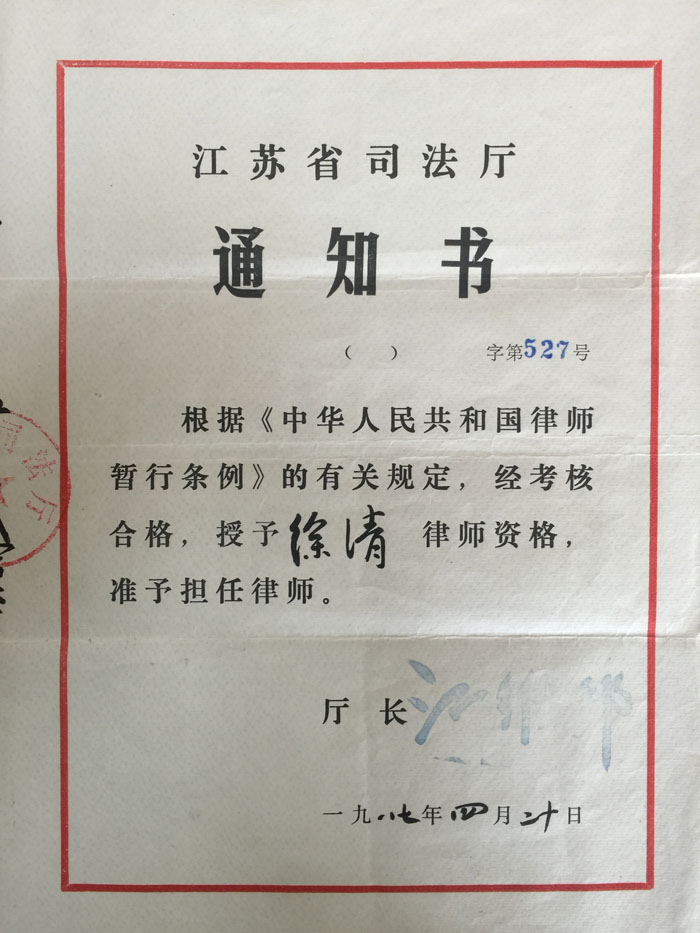 江苏省司法厅
通知书
（ ） 字第527号
根据《中华人民共和国律师
暂行条例》的有关规定，经考核
合格，授予徐清 律师资格，
准予担任律师。
厅长
一九八七年四月二十日
司法厅